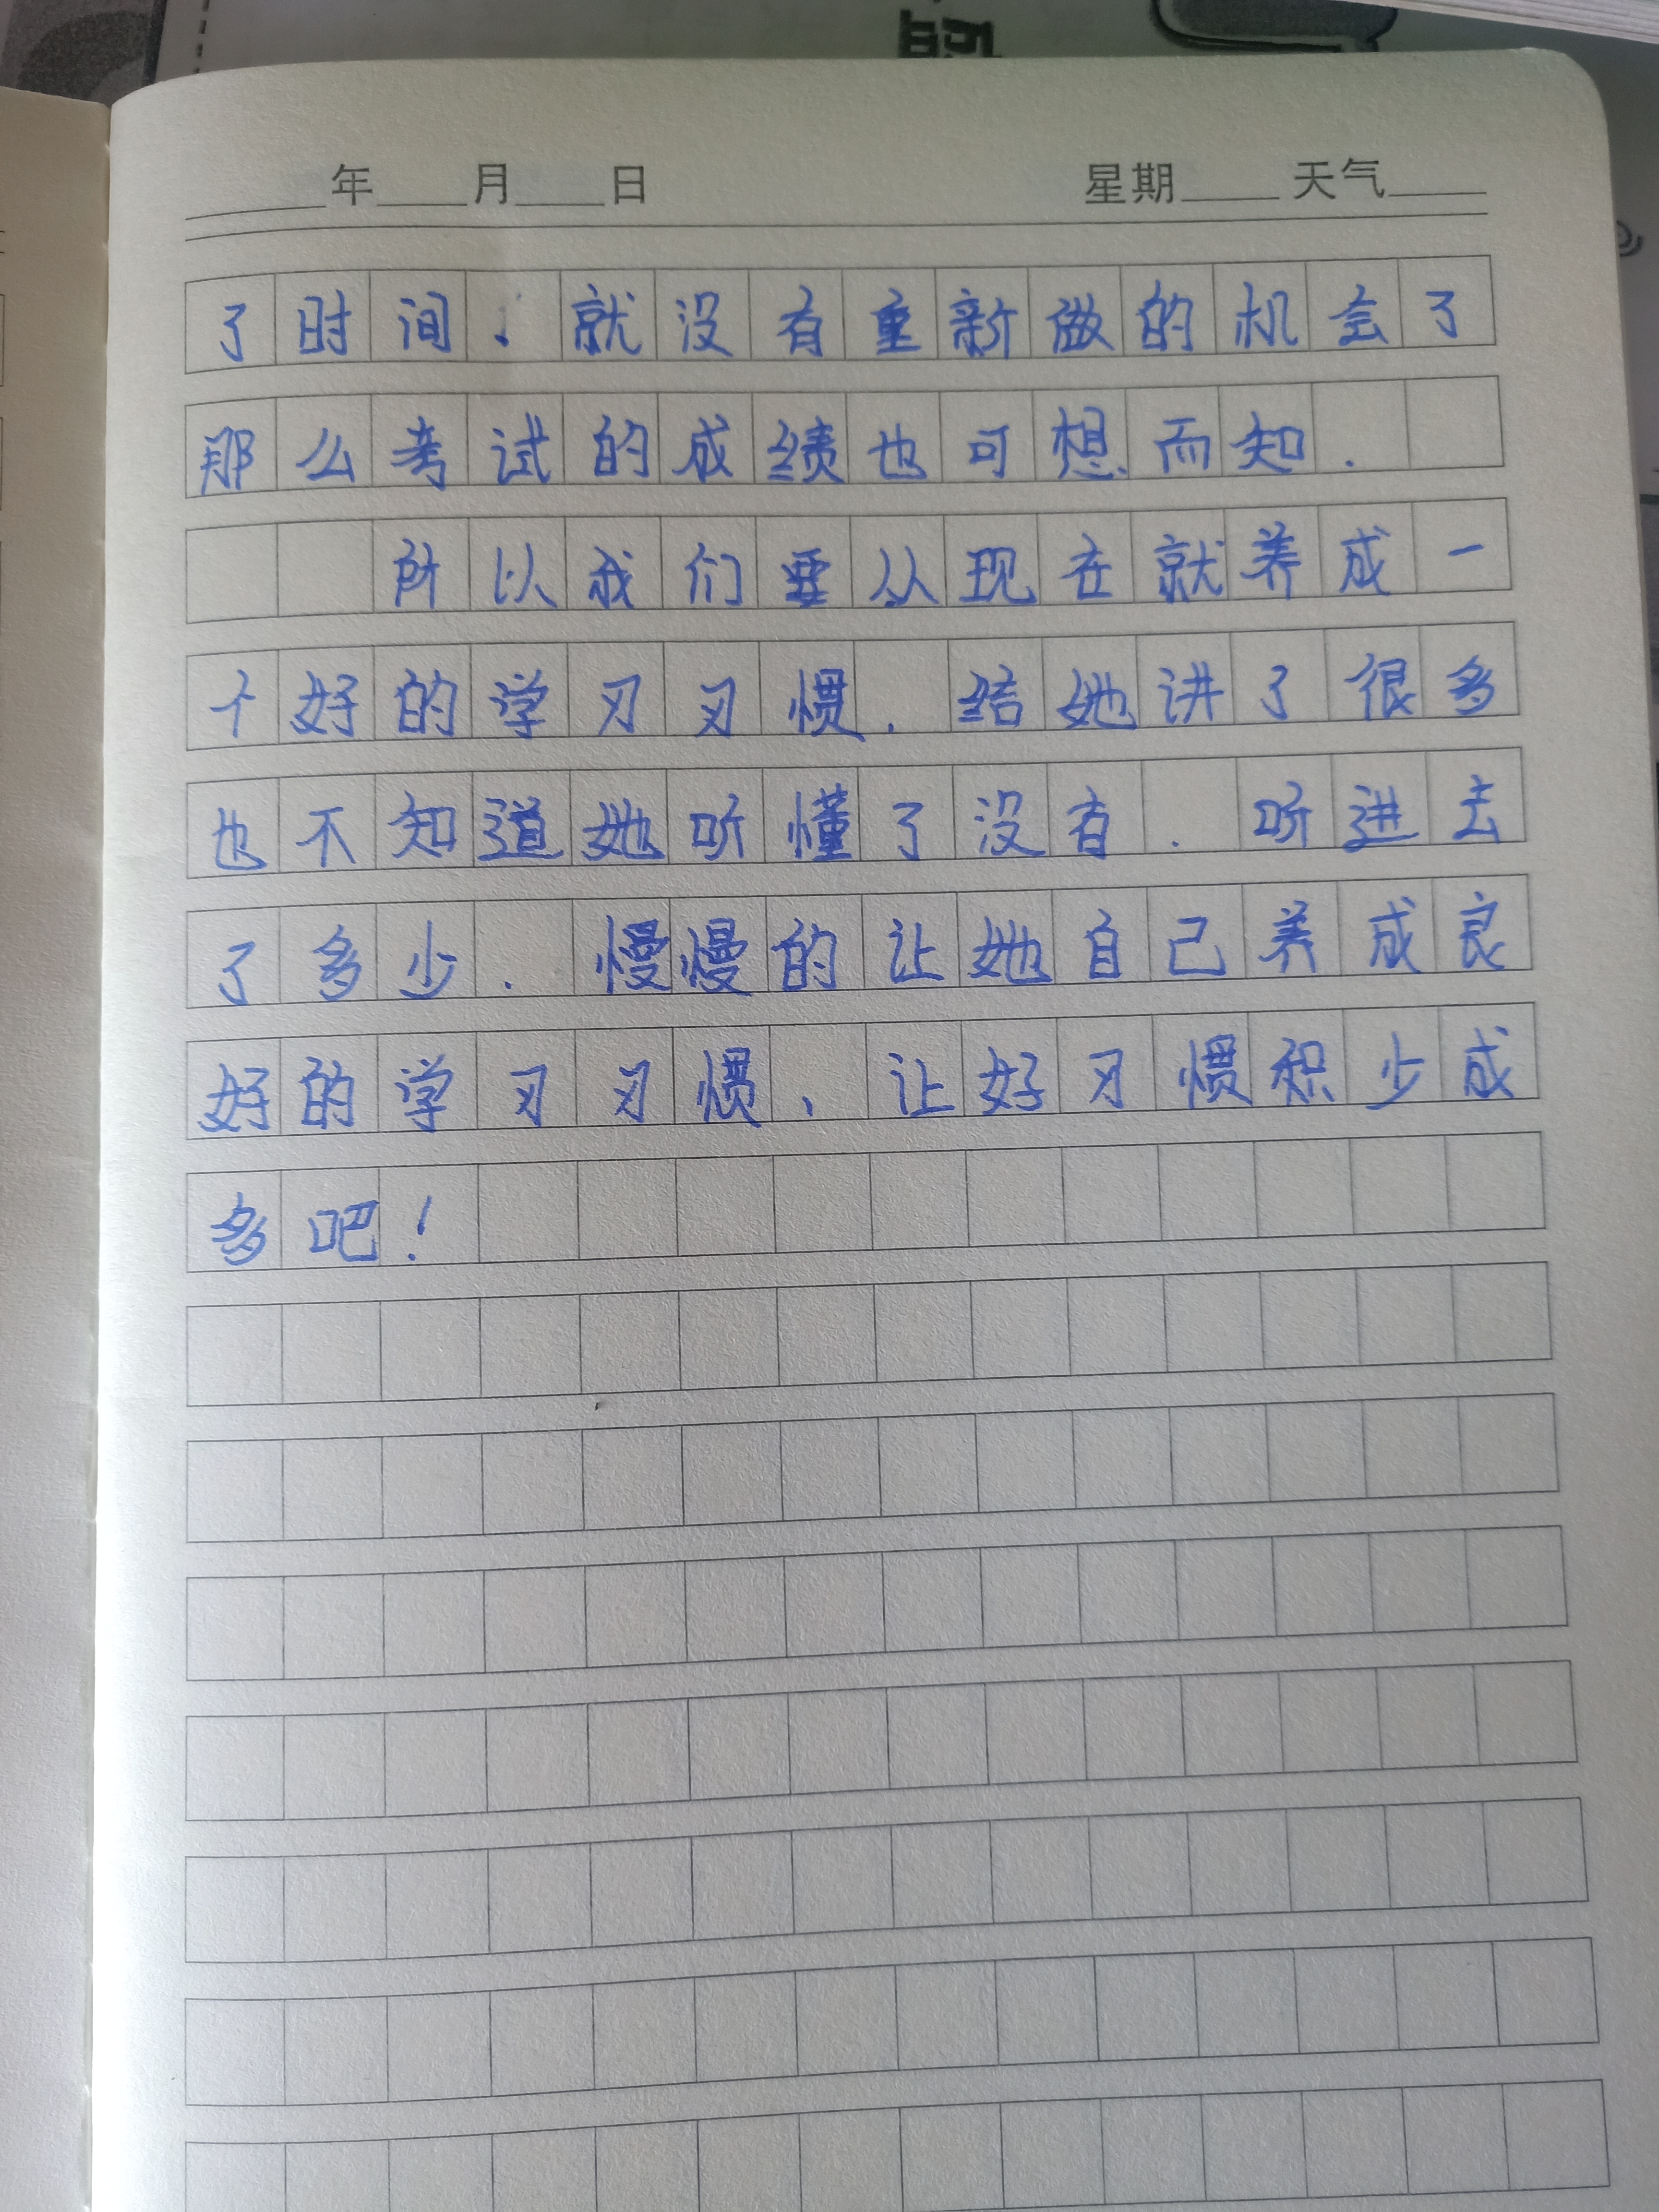 年 月 日 星期 天气
了时间.就没有重新做的机会了
那么考试的成绩也可想而知.
所以我们要从现在就养成一
个好的学习习惯.给她讲了很多
也不知道她听懂了没有.听进去
了多少.慢慢的让她自己养成良
好的学习习惯、让好习惯积少成
多吧!